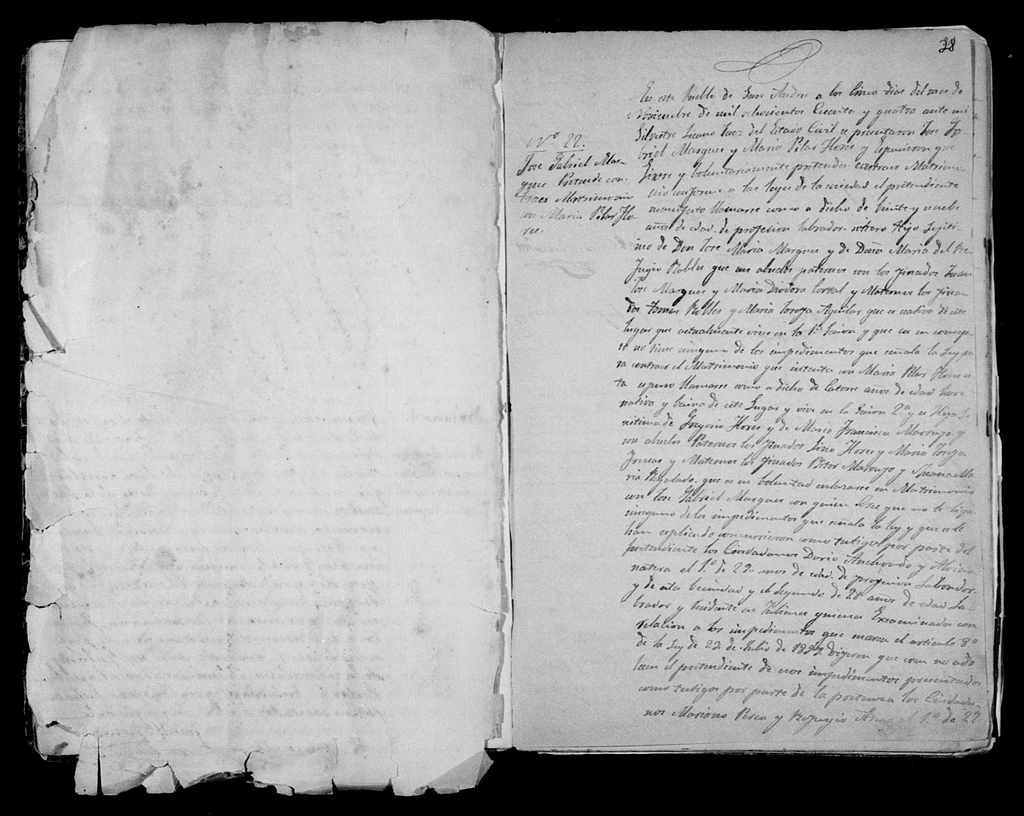 38
Nº 22.
Jose Gabriel Mar-
quez Pretende con-
traer Matrimonio
con Maria Pilar Flo-
res.
En este Pueblo de San Andres a los Cinco dias del mes de
Diciembre de mil ochocientos y quatro ante mi
Juez del Estado Civil se presentaron Jose Ga-
briel Marques y Maria Pilar Flores y Espusieron que
libre y boluntariamente pretenden contraer Matrimo-
nio conforme a las leyes de la sociedad el pretendiente
manifesto llamarse como a dicho de beinte y nuebe
años de edad de profecion labrador soltero Hijo Legiti-
mo de Don Jose Maria Marques y de Doña Maria del Re-
fugio Robles que sus abuelos paternos son los finados Juan
Jose Marques y Maria y Maternos los fina-
dos Tomas Robles y Maria Aguilar que es nativo de este
lugar que actualmente vive en la 1ª y que en su concep-
to no tiene ninguno de los impedimentos que señala la Ley pa-
ra contraer el Matrimonio que intenta con Maria Pilar Flores es-
ta espuso llamarse como a dicho de Catorse años de edad
nativa y becina de este Lugar y vive en la 2ª y es Hija Le-
jitima de Gregorio Flores y de Maria Francisca y
son abuelos Paternos los finados Flores y Maria
y Maternos los finados y Juana Ma-
ria Regalado, que es su boluntad enlasarse en Matrimonio
con Jose Gabriel Marques con quien dise que no le liga
ninguno de los impedimentos que señala la ley y que se le
han esplicado concurrieron como testigos por parte del
pretendiente los Ciudadanos Dario y
el 1º de 22 años de edad de profecion labrador
y de esta becindad y el segundo de 28 años de edad La-
brador y becindante en quienes Examinados con
relacion a los impedimentos que marca el articulo 8º
de la Ley de 23 de Julio de 1859 dijeron que no ado-
lece el pretendiente de esos impedimentos presentados
como testigos por parte de la pretensa los Ciudada-
nos Mariano Perea y el 1º de 27